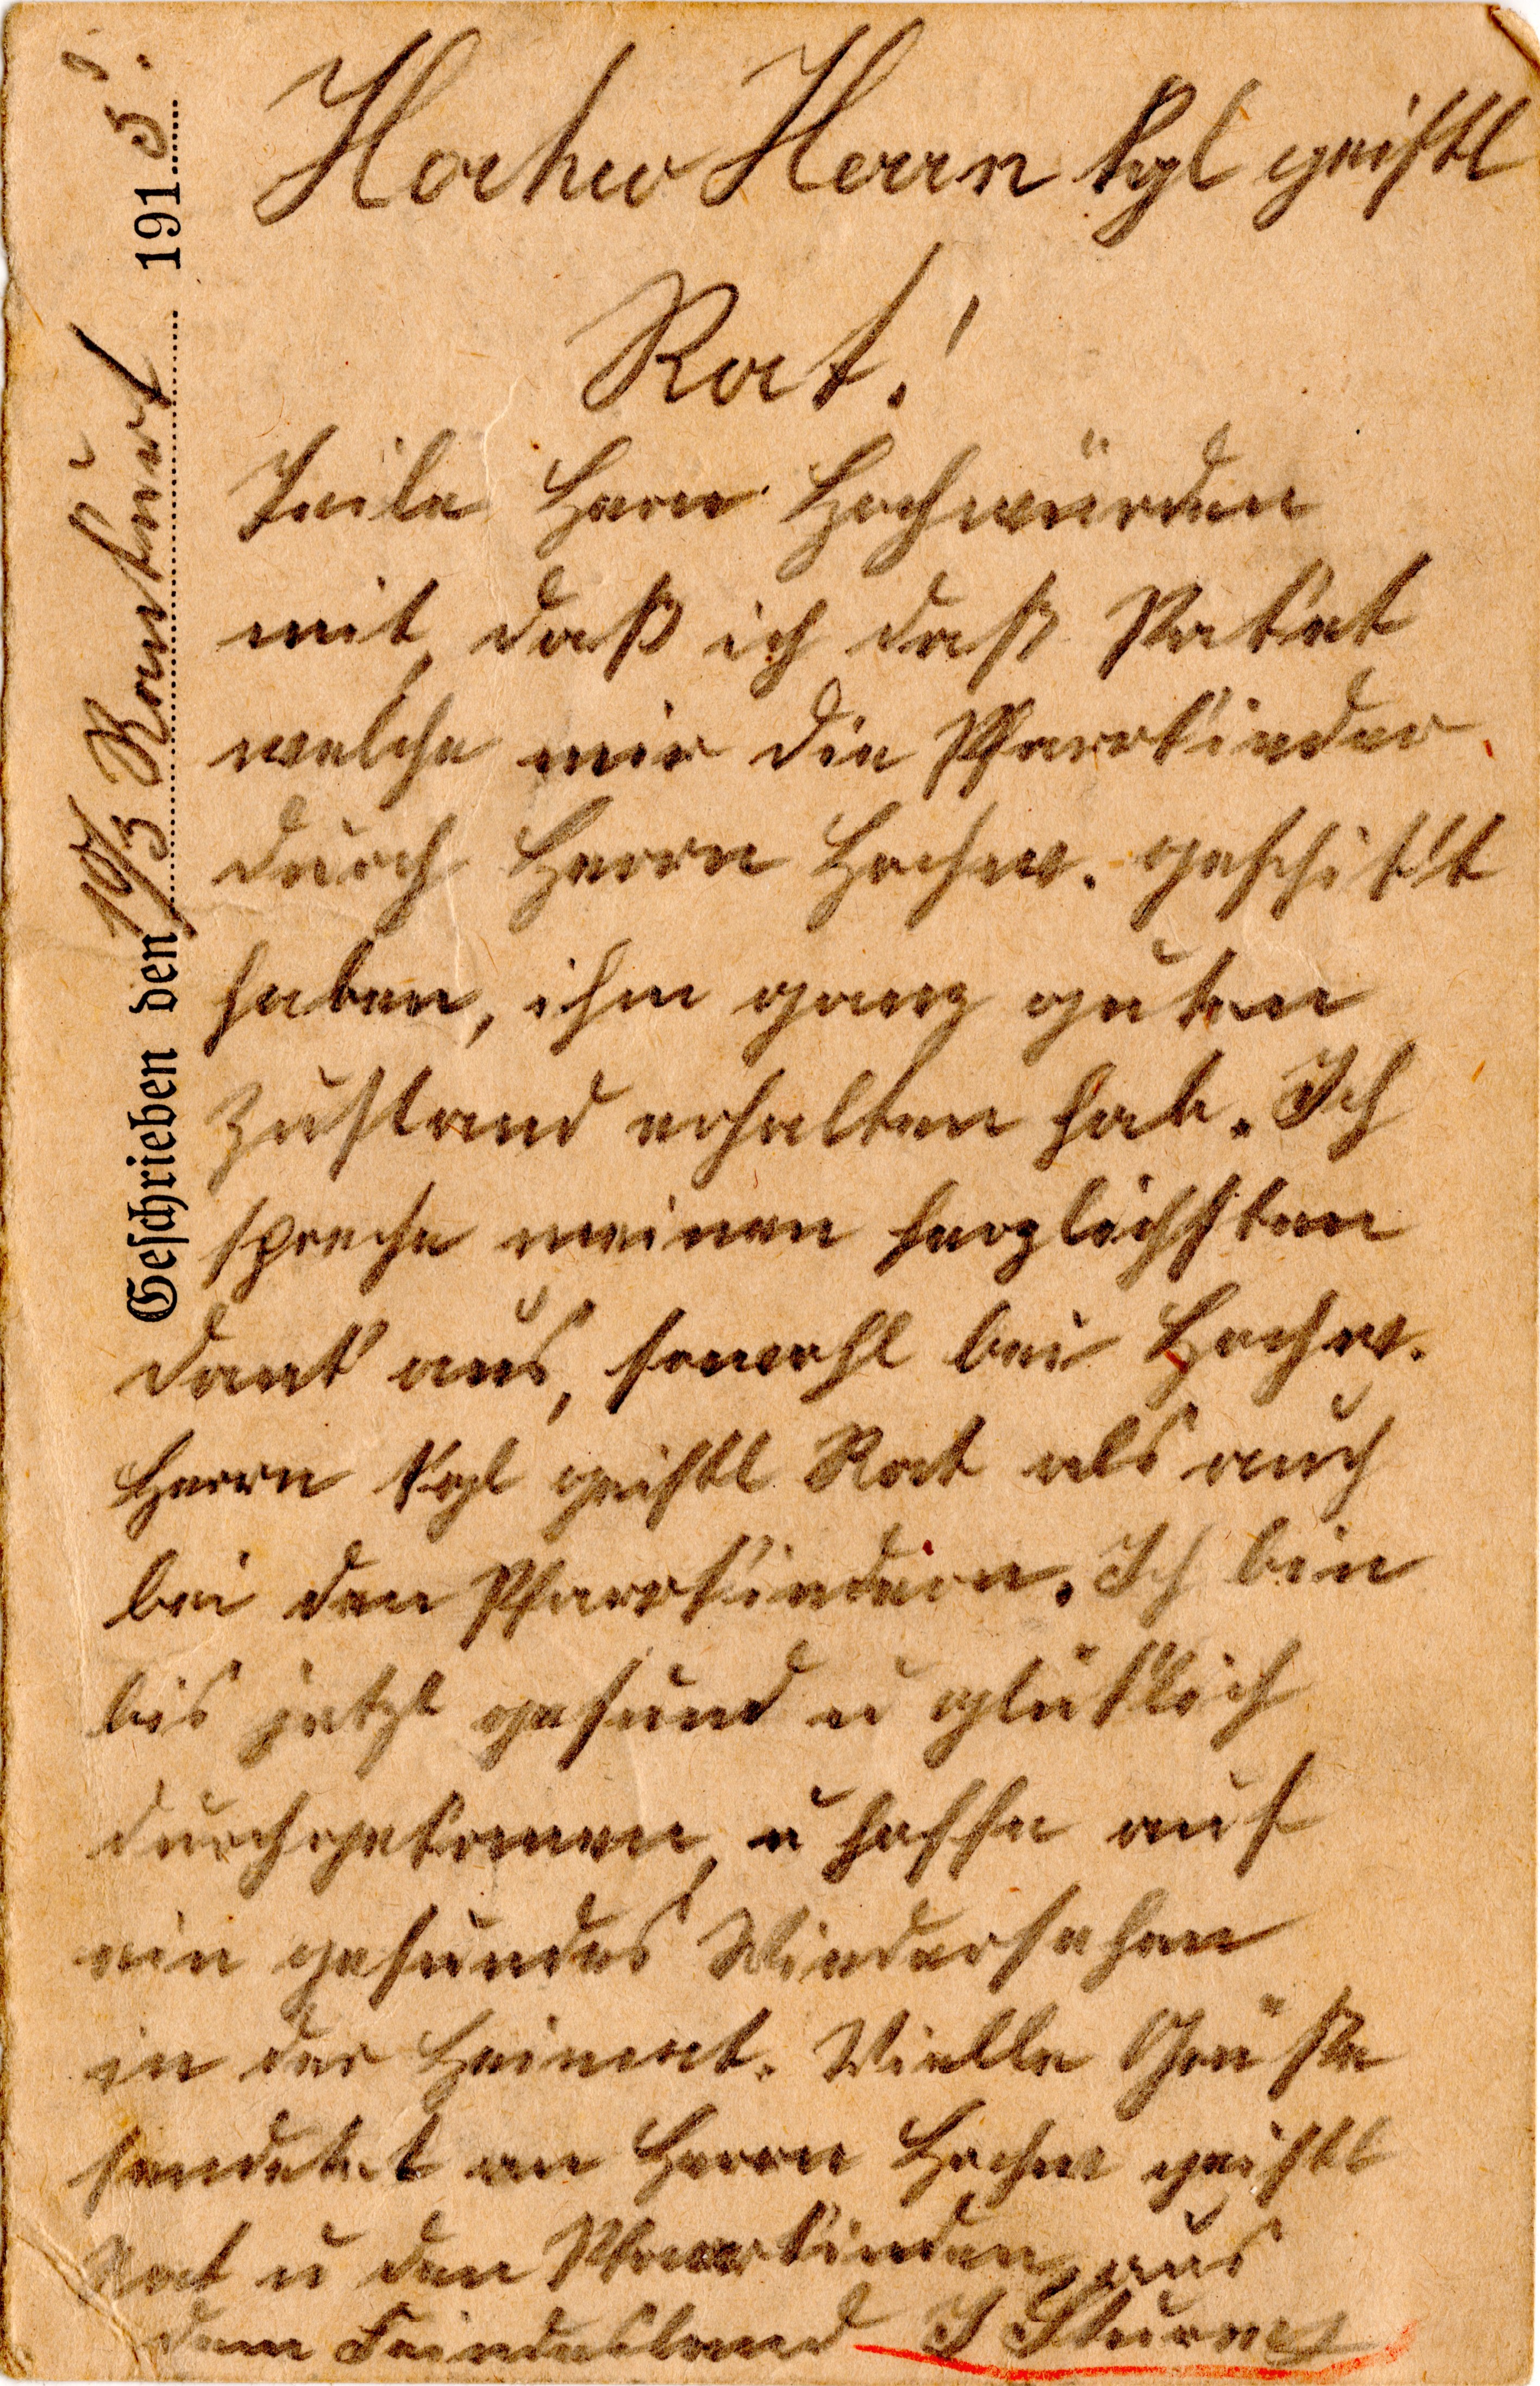 Geschrieben den 19/3 1915.
Hochw Herrn kgl geistl
Rat!
Teile Herrn Hochwürden
mit, daß ich daß Paket
welche mir die Pfarrkinder
durch Herrn Hochw. geschikt
haben, ihm ganz guten
Zustand erhalten hab. Ich
spreche meinen herzlichsten
Dank aus, sowohl bei Hochw.
Herrn kgl geistl Rat als auch
bei den Pfarrkindern. Ich bin
bis jetzt gesund u glüklich
durchgekomen, u hoffe auf
ein gesundes Wiedersehen
in der Heimat. Vielle Grüße
sendetet an Herrn Hochw geistl
Rat u den Pfarrkinden aus
dem Feindesland J Sturm